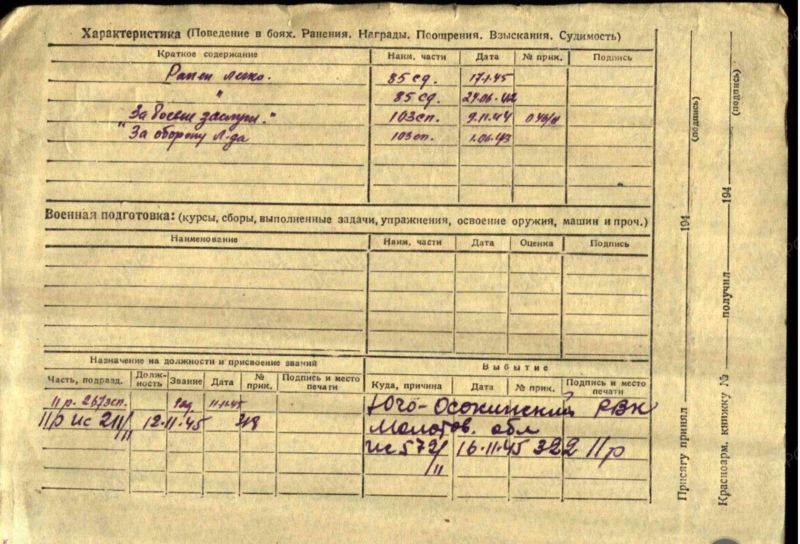 Характеристика (Поведение в боях. Ранения. Награды. Поощрения. Взыскания. Судимость)
Краткое содержание Наим. части Дата № прик. Подпись
Ранен легко. 85 сд. 17.1.45
" 85 сд. 24.06.42
"За боевые заслуги." 103 сп. 9.11.44
"За оборону Л-да 103 сп. 1.06.43
Военная подготовка: (курсы, сборы, выполненные задачи, упражнения, освоение оружия, машин и проч.)
Наименование Наим. части Дата Оценка Подпись
Назначение на должности и присвоение званий
Часть, подразд. Долж-ность Звание Дата № прик. Подпись и место печати
11 р. 267 зсп. 11.11.45
12.11.45 318
Выбытие
Куда, причина Дата № прик. Подпись и место печати
Юго-Осокинский РВК
Молотов. обл
16.11.45 322 11р
Присягу принял 194 (подпись)
Красноарм. книжку № получил 194 (подпись)